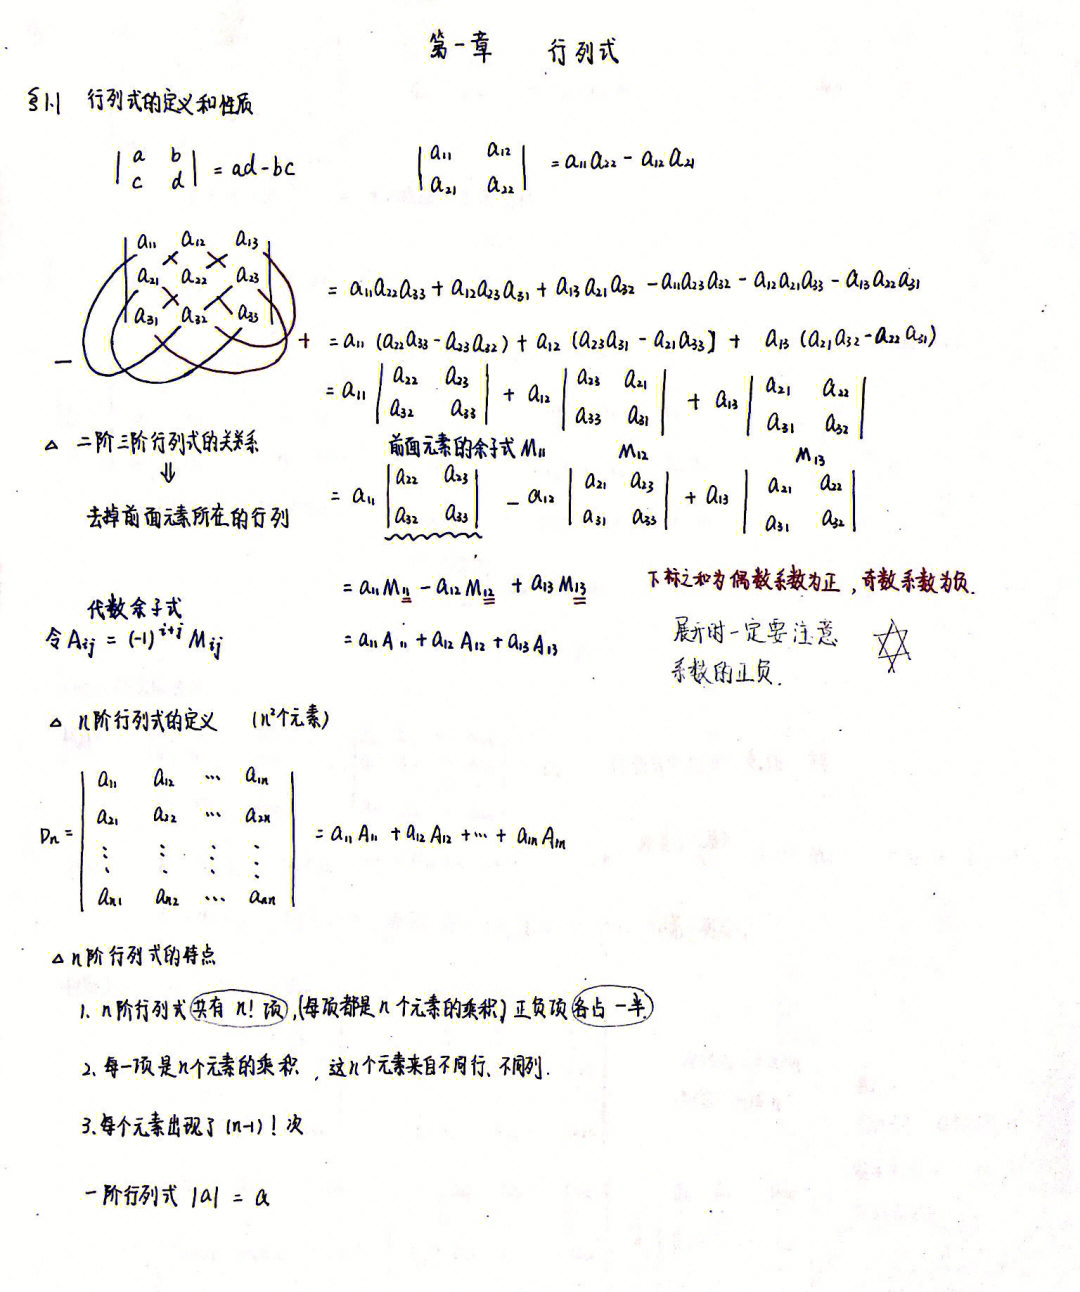 第一章 行列式
§1.1 行列式的定义和性质
| a b | = ad-bc | a₁₁ a₁₂ | = a₁₁a₂₂ - a₁₂a₂₁
| c d | | a₂₁ a₂₂ |
| a₁₁ a₁₂ a₁₃ |
| a₂₁ a₂₂ a₂₃ | = a₁₁a₂₂a₃₃ + a₁₂a₂₃a₃₁ + a₁₃a₂₁a₃₂ - a₁₁a₂₃a₃₂ - a₁₂a₂₁a₃₃ - a₁₃a₂₂a₃₁
| a₃₁ a₃₂ a₃₃ |
- + = a₁₁ (a₂₂a₃₃ - a₂₃a₃₂) + a₁₂ (a₂₃a₃₁ - a₂₁a₃₃] + a₁₃ (a₂₁a₃₂ - a₂₂a₃₁)
= a₁₁ | a₂₂ a₂₃ | + a₁₂ | a₂₃ a₂₁ | + a₁₃ | a₂₁ a₂₂ |
| a₃₂ a₃₃ | | a₃₃ a₃₁ | | a₃₁ a₃₂ |
△ 二阶三阶行列式的关系 前面元素的余子式 M₁₁ M₁₂ M₁₃
⇓
去掉前面元素所在的行列
= a₁₁ | a₂₂ a₂₃ | - a₁₂ | a₂₁ a₂₃ | + a₁₃ | a₂₁ a₂₂ |
| a₃₂ a₃₃ | | a₃₁ a₃₃ | | a₃₁ a₃₂ |
= a₁₁M₁₁ - a₁₂M₁₂ + a₁₃M₁₃ 下标之和为偶数系数为正，奇数系数为负.
代数余子式
令 Aᵢⱼ = (-1)ⁱ⁺ʲ Mᵢⱼ = a₁₁A₁₁ + a₁₂A₁₂ + a₁₃A₁₃
展开时一定要注意
系数的正负.
△ n阶行列式的定义 (n²个元素)
| a₁₁ a₁₂ ⋯ a₁ₙ |
| a₂₁ a₂₂ ⋯ a₂ₙ |
Dₙ = | ⋮ ⋮ ⋮ ⋮ | = a₁₁A₁₁ + a₁₂A₁₂ + ⋯ + a₁ₙA₁ₙ
| aₙ₁ aₙ₂ ⋯ aₙₙ |
△ n阶行列式的特点
1. n阶行列式共有 n! 项,(每项都是n个元素的乘积) 正负项各占一半)
2、每一项是n个元素的乘积，这n个元素来自不同行、不同列.
3.每个元素出现了 (n-1)! 次
一阶行列式 |a| = a